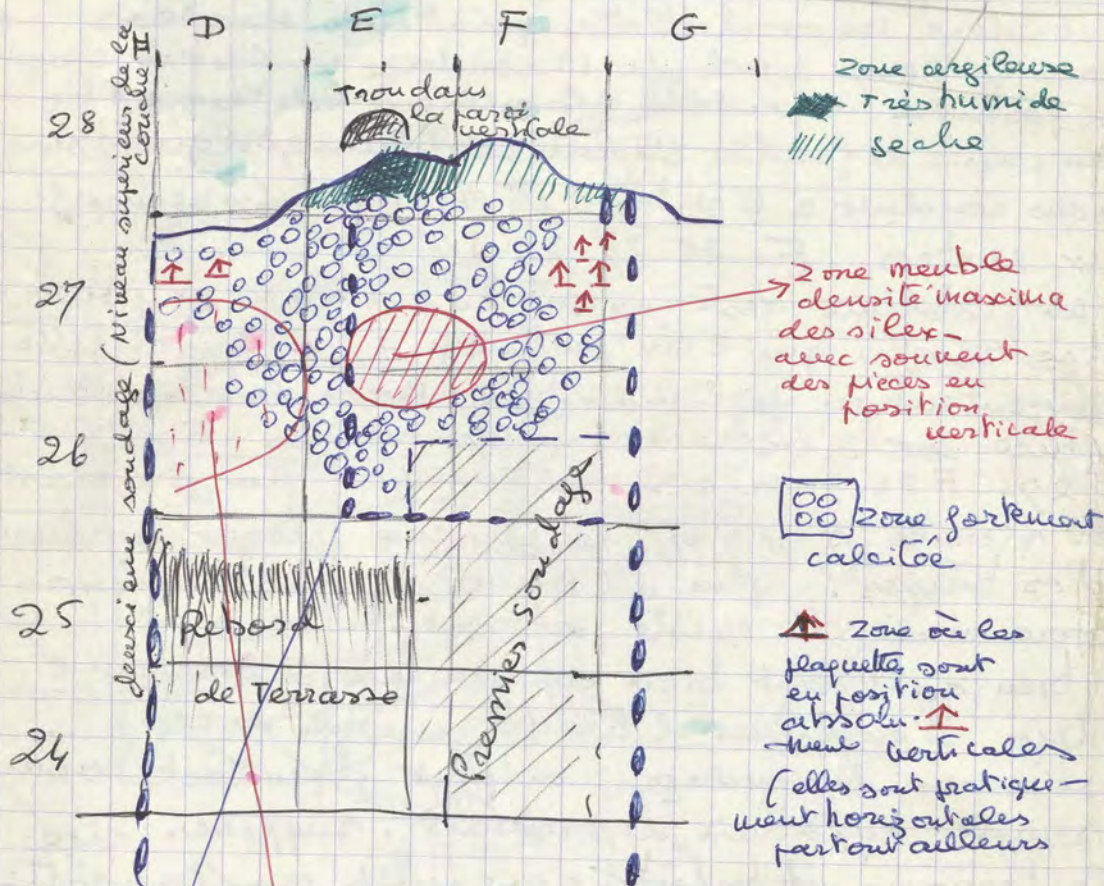 D E F G
28
27
26
25
24
deuxième sondage (Niveau supérieur de la
couche II
Trou dans
la paroi
verticale
Zone argileuse
Très humide
sèche
Zone meuble
densité maxima
des silex -
avec souvent
des pièces en
position
verticale
Zone fortement
calcitée
Zone où les
plaquettes sont
en position
absolu-
-ment verticales
(elles sont pratique-
ment horizontales
partout ailleurs
Rebord
de Terrasse
Premier sondage